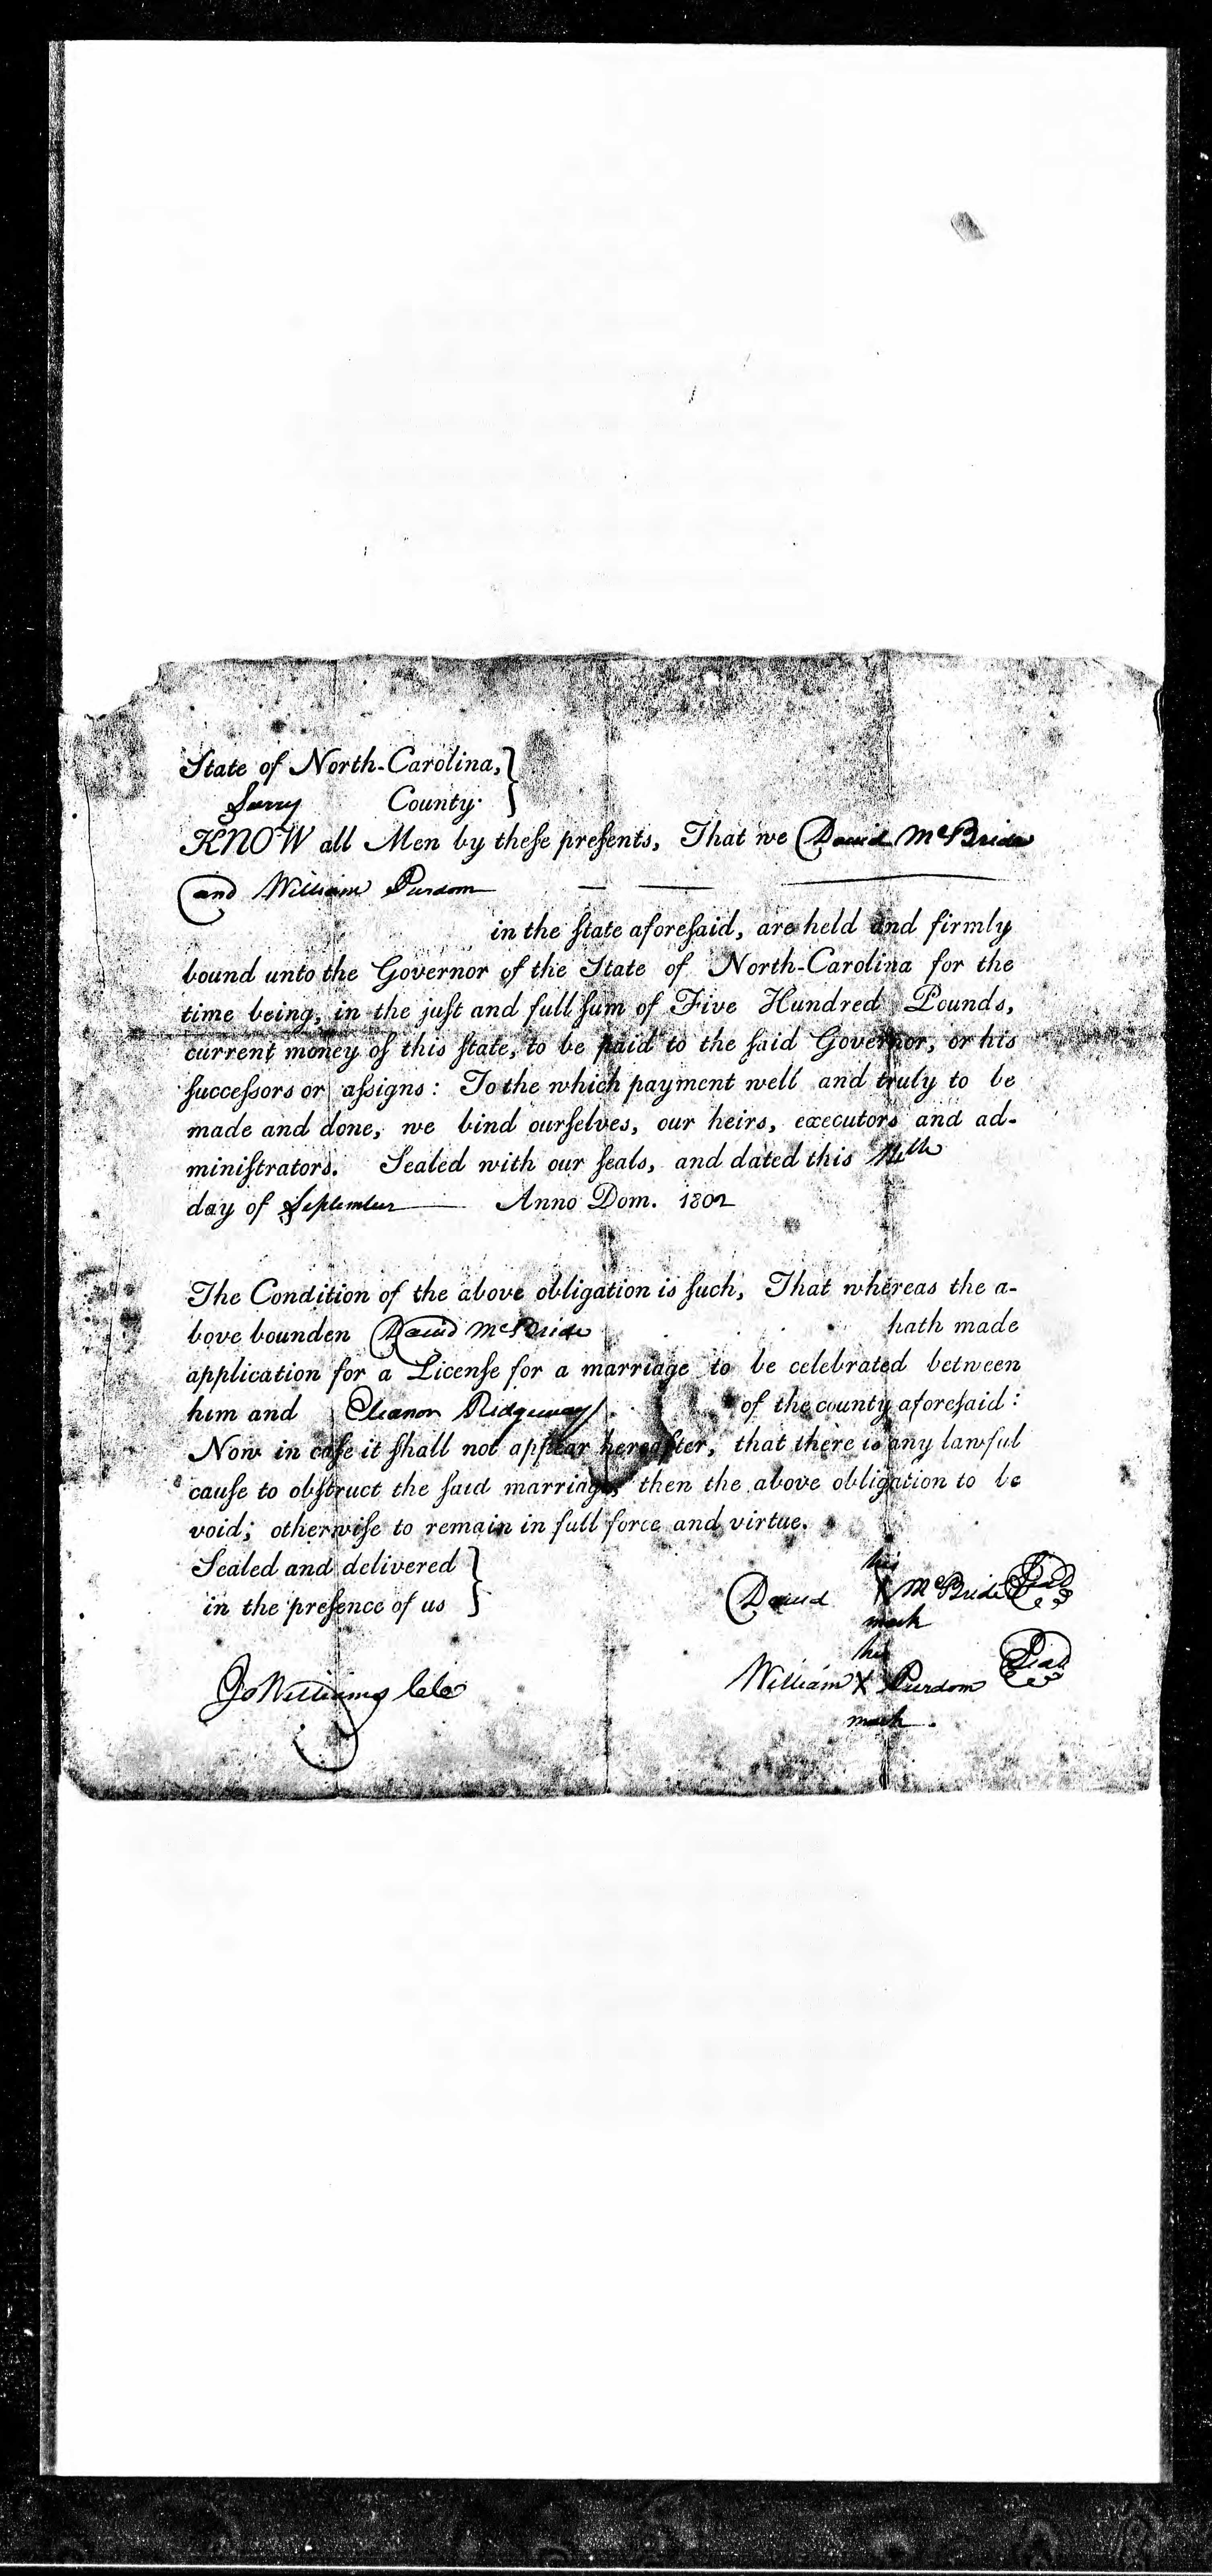 State of North-Carolina,}
Surry County. }
KNOW all Men by theſe preſents, That we David McBride
and William Purdom
in the ſtate aforeſaid, are held and firmly
bound unto the Governor of the State of North-Carolina for the
time being, in the juſt and full ſum of Five Hundred Pounds,
current money of this ſtate, to be paid to the ſaid Governor, or his
ſucceſſors or aſsigns: To the which payment well and truly to be
made and done, we bind ourſelves, our heirs, executors and ad-
miniſtrators. Sealed with our ſeals, and dated this
day of September Anno Dom. 1802
The Condition of the above obligation is ſuch, That whereas the a-
bove bounden David McBride hath made
application for a Licenſe for a marriage to be celebrated between
him and Eleanor Ridgeway of the county aforeſaid:
Now in caſe it ſhall not appear hereafter, that there is any lawful
cauſe to obſtruct the ſaid marriage, then the above obligation to be
void; otherwiſe to remain in full force and virtue.
Sealed and delivered }
in the preſence of us }
his
David X McBride Seal
mark
his
Jo Williams William X Purdom Seal
mark